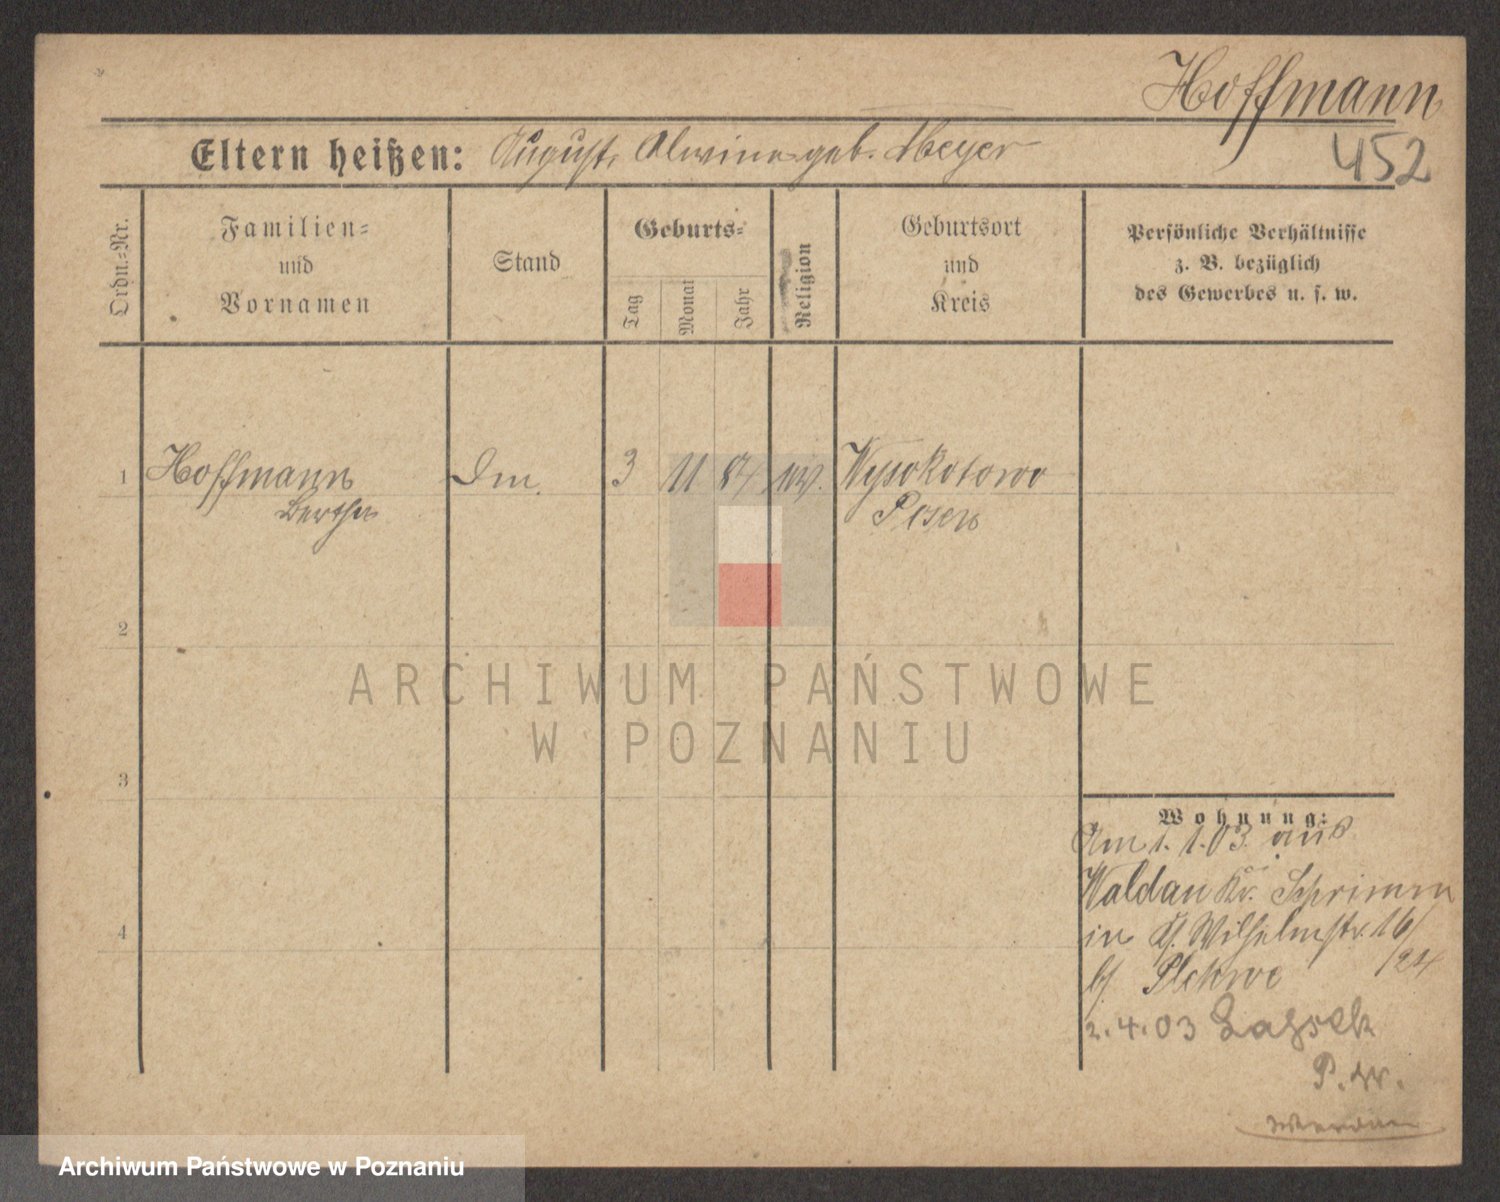 Hoffmann
452
Eltern heißen: August, Alwine geb. Meyer
Ordn.-Nr.
Familien- und Vornamen
Stand
Geburts-
Tag
Monat
Jahr
Religion
Geburtsort und Kreis
Persönliche Verhältnisse
z. B. bezüglich
des Gewerbes u. s. w.
1 Hoffmann Dm. 3 11 84 Wysokotowo
Bertha Posen
2
3
4
Wohnung:
Am 1.1.03. aus
Waldau Kr. Schrimm
in Wilhelmstr. 16/
/24
b/
2.4.03
P. W.
ARCHIWUM PAŃSTWOWE
W POZNANIU
Archiwum Państwowe w Poznaniu